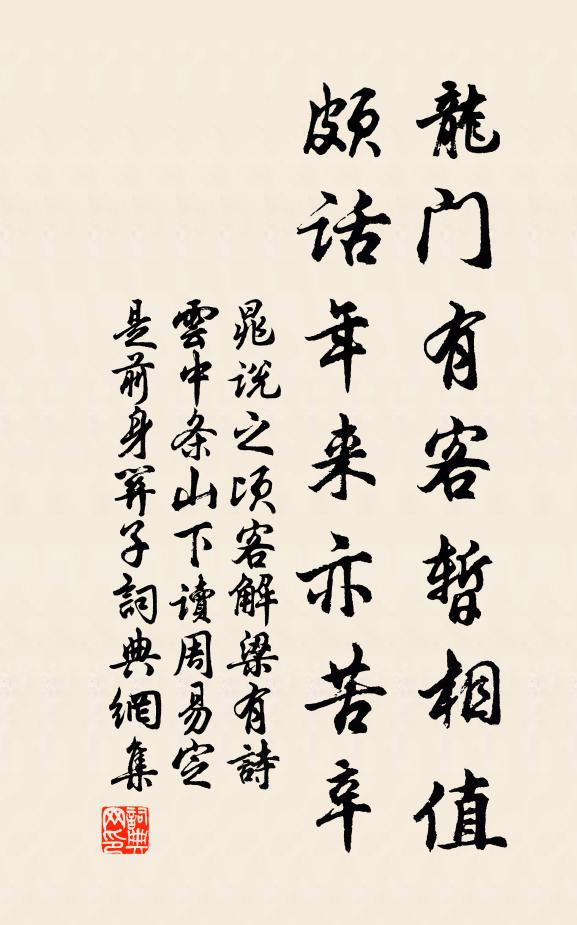 龍门有客暫相值
頗话年来亦苦辛
晁说之顷客解梁有詩
雲中条山下讀周易定
是前身關子詞典網集
詞典网印